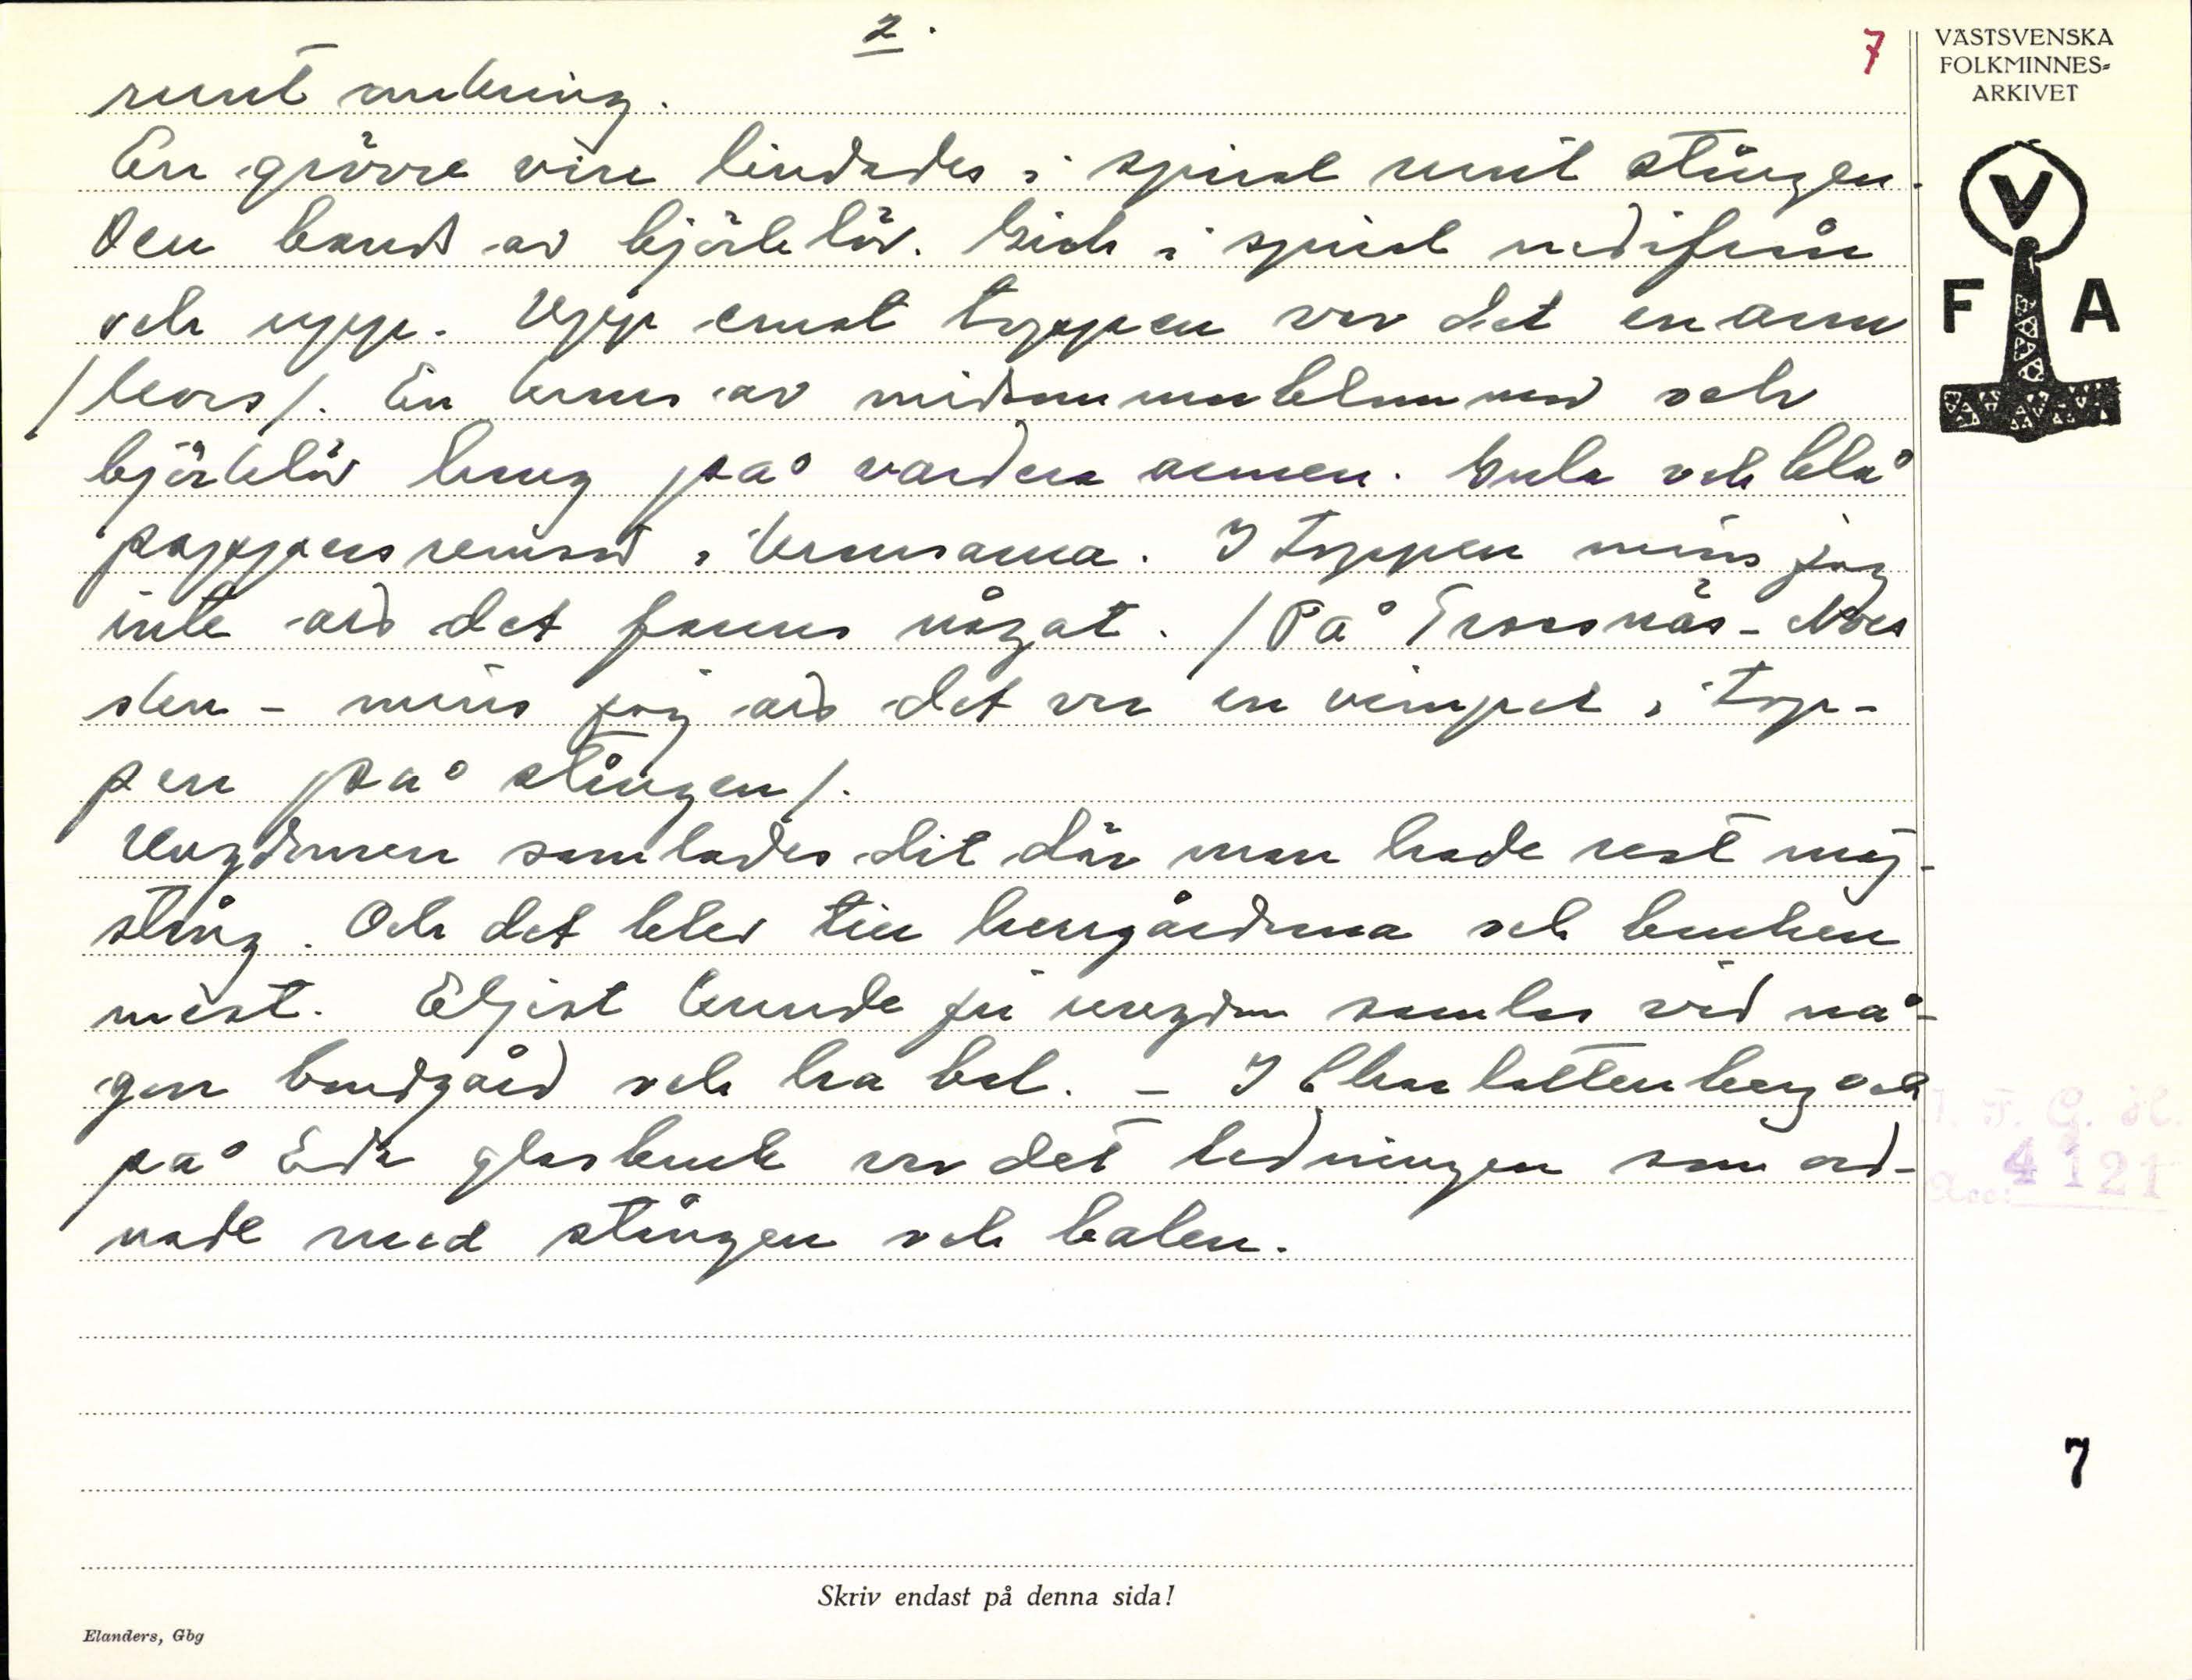 2.
7
runt omkring.
En grövre vire lindades i spiral runt stången.
Den bands av björklöv. Gick i spiral nedifrån
och upp. Upp emot toppen var det en arm
/kors/. En krans av midsommarblommor och
björklöv hang på vardera armen. Gula och blå
pappersremsor i kransarna. I toppen mins jag
inte om det fanns något. /På Trossnäs - Nors
skn - mins jag om det var en vimpel i top-
pen på stången/.
Ungdomen samlades dit där man hade rest maj-
stång. Och det blev till herrgårdarna och bruken
mest. Eljest kunde ju ungdom samlas vid nå-
gon bondgård och ha bal. - I Charlottenberg och
på Eda glasbruk var det ledningen som ord-
nade med stången och balen.
VÄSTSVENSKA
FOLKMINNES-
ARKIVET
V
F A
I. F. G. H.
Acc: 4121
7
Skriv endast på denna sida!
Elanders, Gbg